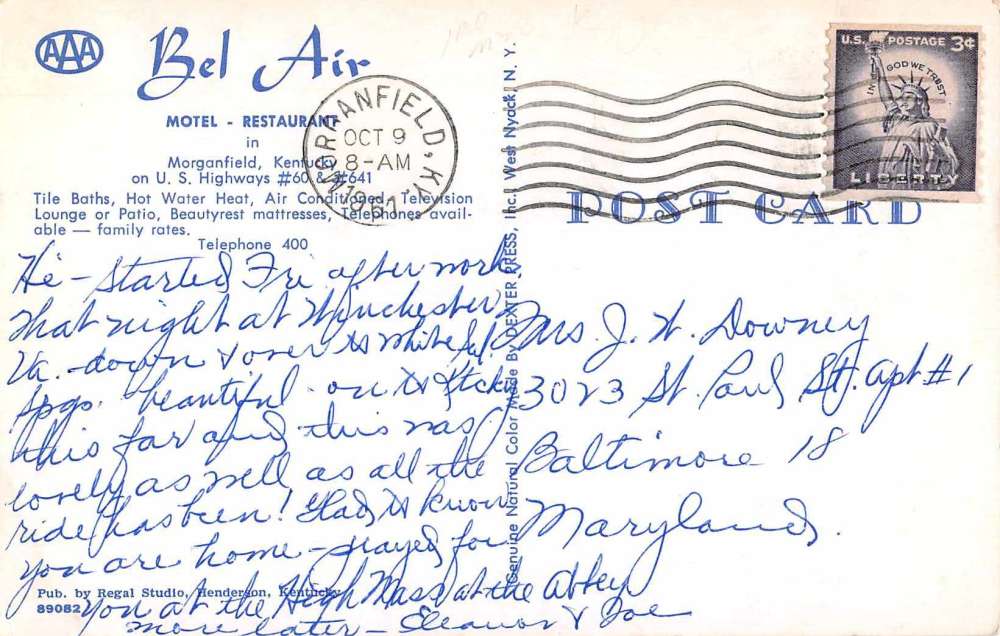 AAA
Bel Air
MOTEL - RESTAURANT
in
Morganfield, Kentucky
on U. S. Highways #60 & #641
Tile Baths, Hot Water Heat, Air Conditioned, Television
Lounge or Patio, Beautyrest mattresses, Telephones avail-
able — family rates.
Telephone 400
MORGANFIELD, KY.
OCT 9
8-AM
1957
U.S. POSTAGE 3¢
IN GOD WE TRUST
LIBERTY
POST CARD
Genuine Natural Color Made By DEXTER PRESS, Inc., West Nyack, N. Y.
Hi - Started Fri. after work,
that night at Winchester,
Va. - down & over to White Sul.
Spgs. beautiful. on to Ktcky
this far and this was
lovely as well as all the
ride has been! Glad to know
you are home - prayed for
you at the High Mass at the Abbey
more later - Eleanor & Joe
Pub. by Regal Studio, Henderson, Kentucky
89082
Mrs J. W. Downey
3023 St. Paul St. apt #1
Baltimore 18
Maryland.